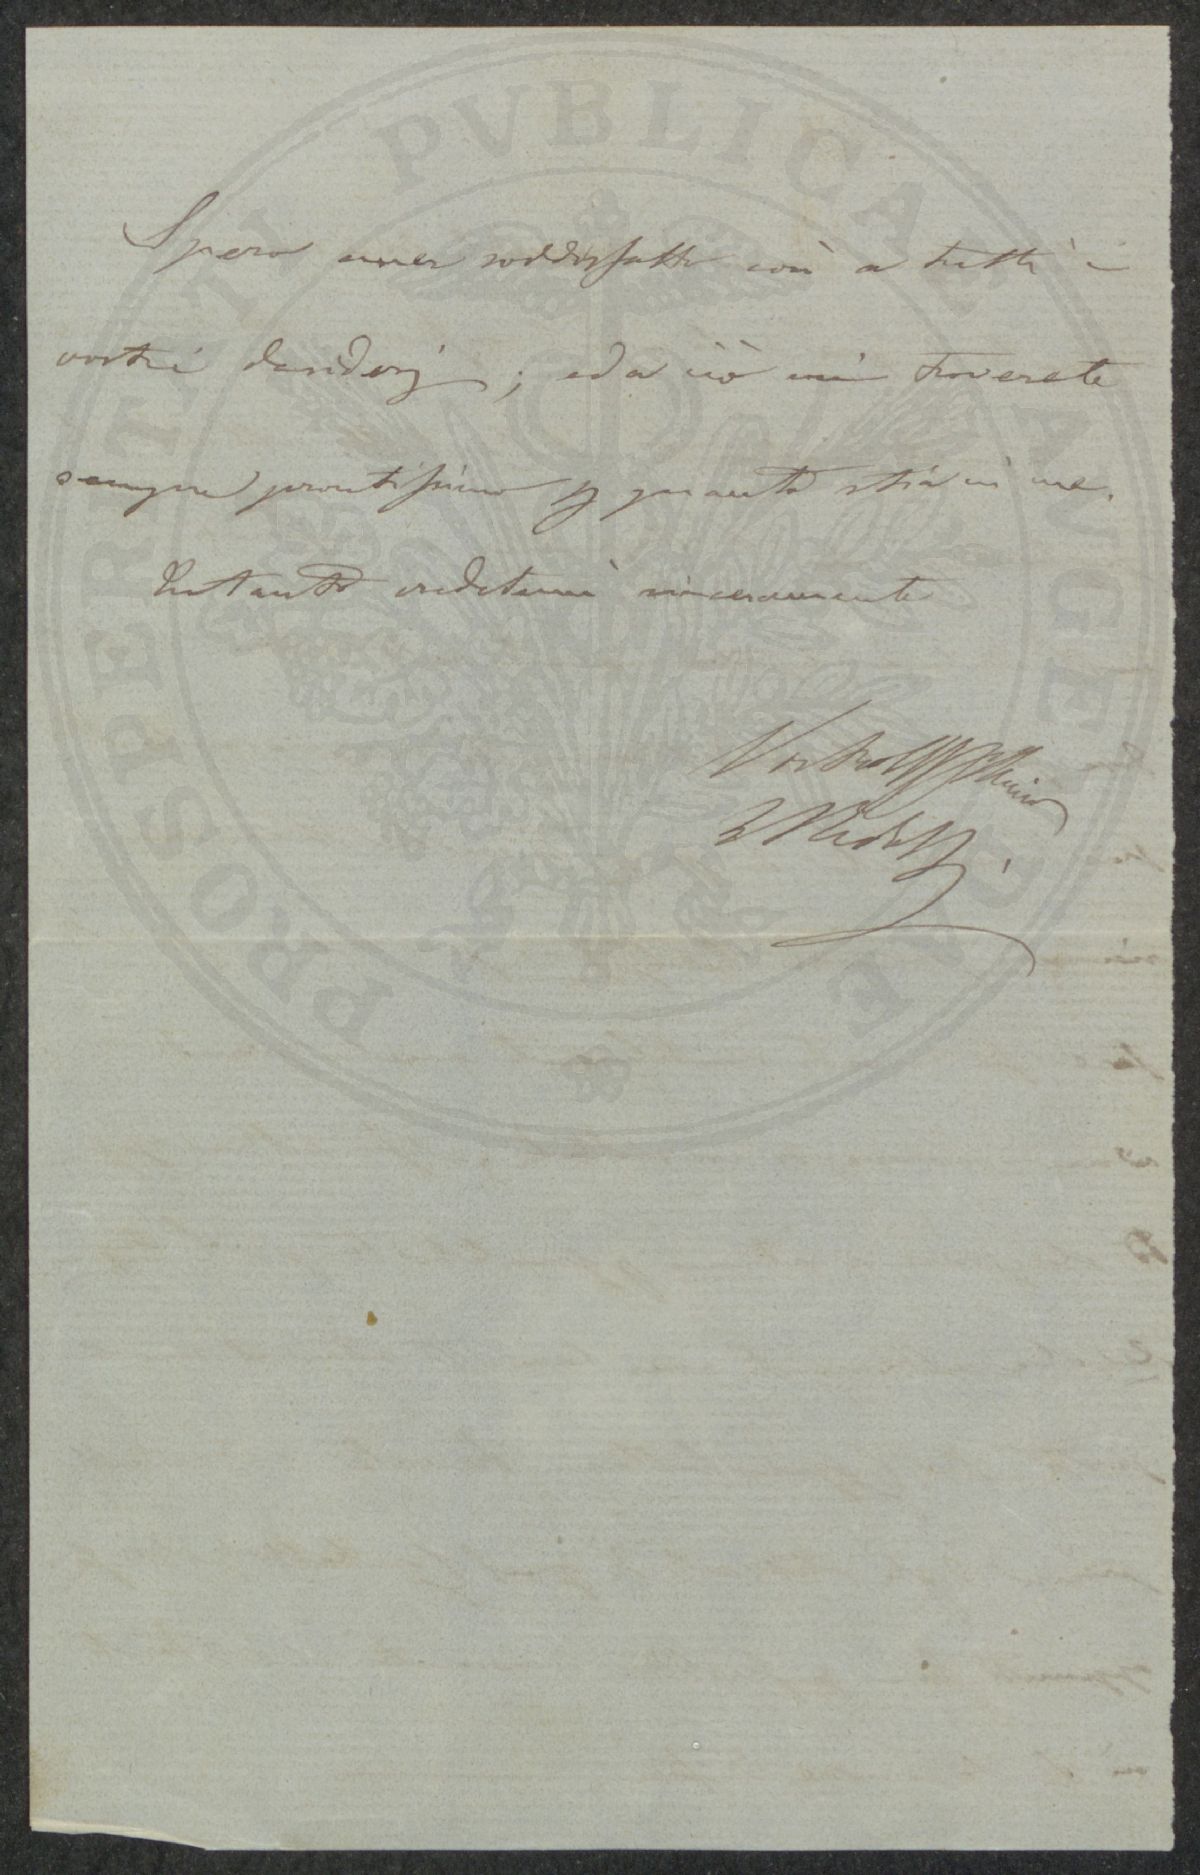 PROSPERITATI PVBLICAE AVGENDAE
Spero aver soddisfatto così a tutti i
vostri desiderj; ed a ciò mi troverete
sempre prontissimo p quanto stia in me.
Intanto credetemi sinceramente
Vostro